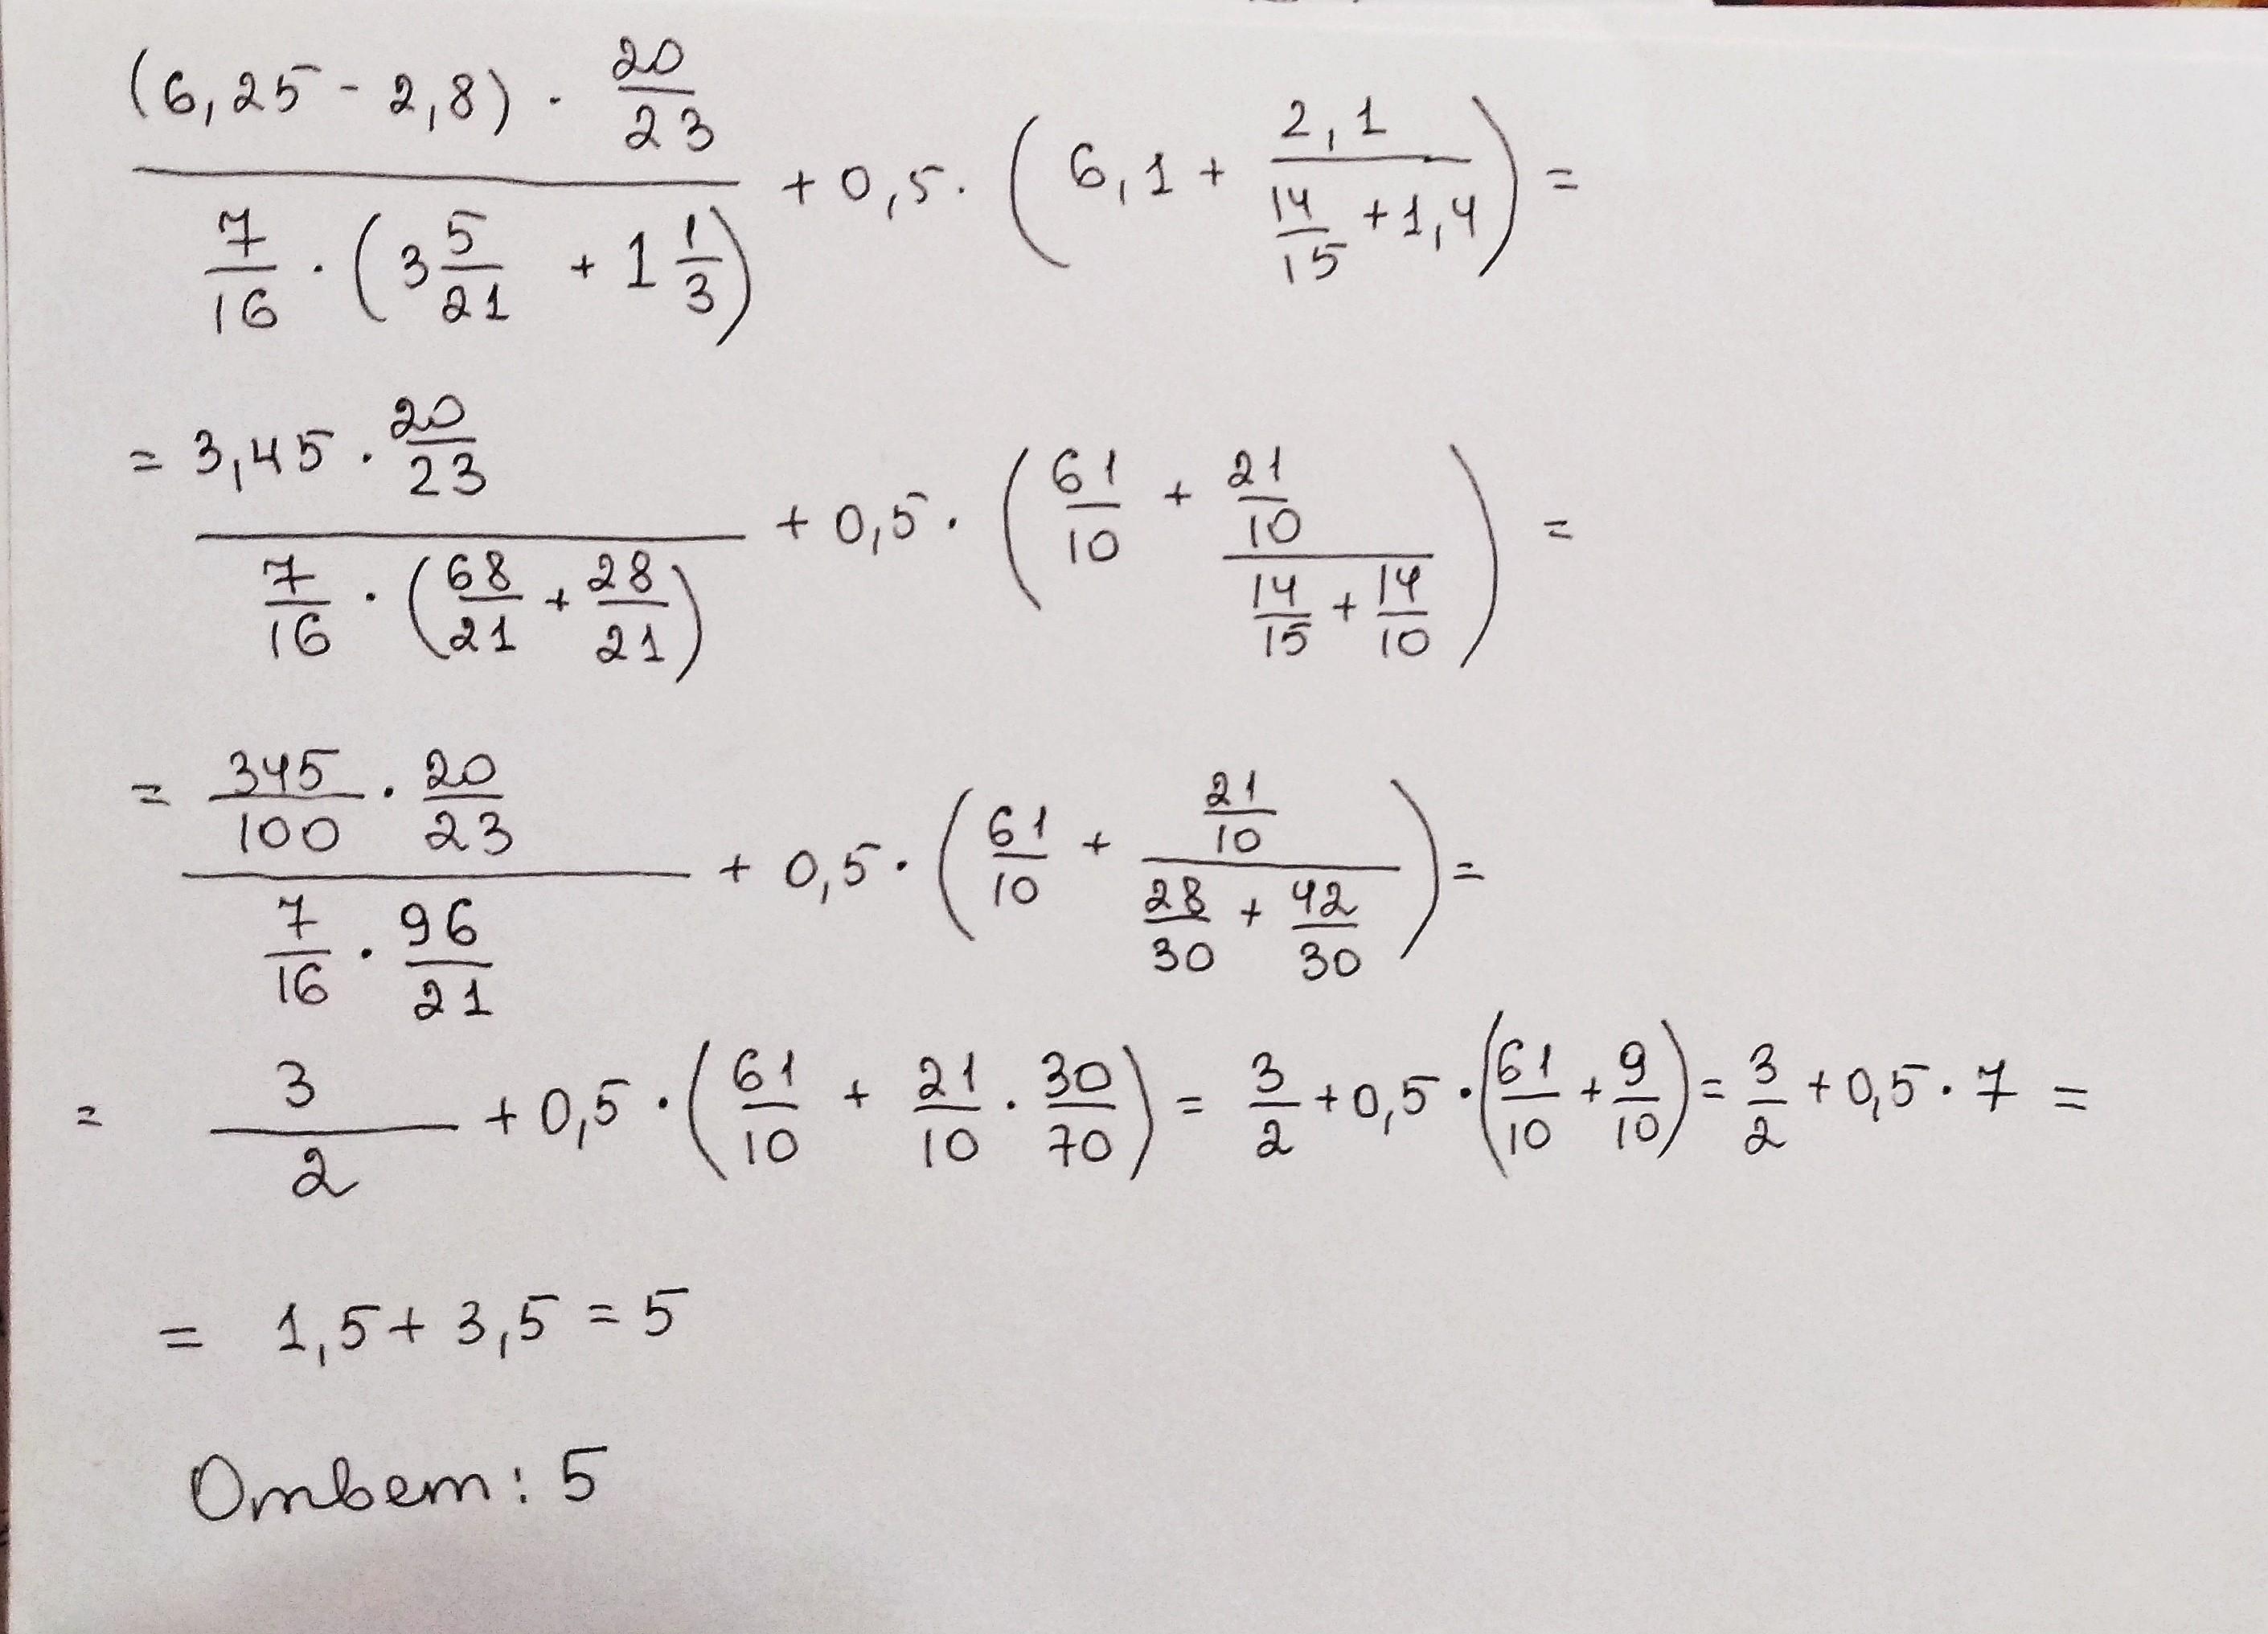 (6,25 - 2,8) · 20/23 / (7/16 · (3 5/21 + 1 1/3)) + 0,5 · (6,1 + 2,1/(14/15 + 1,4)) =
= 3,45 · 20/23 / (7/16 · (68/21 + 28/21)) + 0,5 · (61/10 + 21/10/(14/15 + 14/10)) =
= 345/100 · 20/23 / (7/16 · 96/21) + 0,5 · (61/10 + 21/10/(28/30 + 42/30)) =
= 3/2 + 0,5 · (61/10 + 21/10 · 30/70) = 3/2 + 0,5 · (61/10 + 9/10) = 3/2 + 0,5 · 7 =
= 1,5 + 3,5 = 5
Ответ: 5